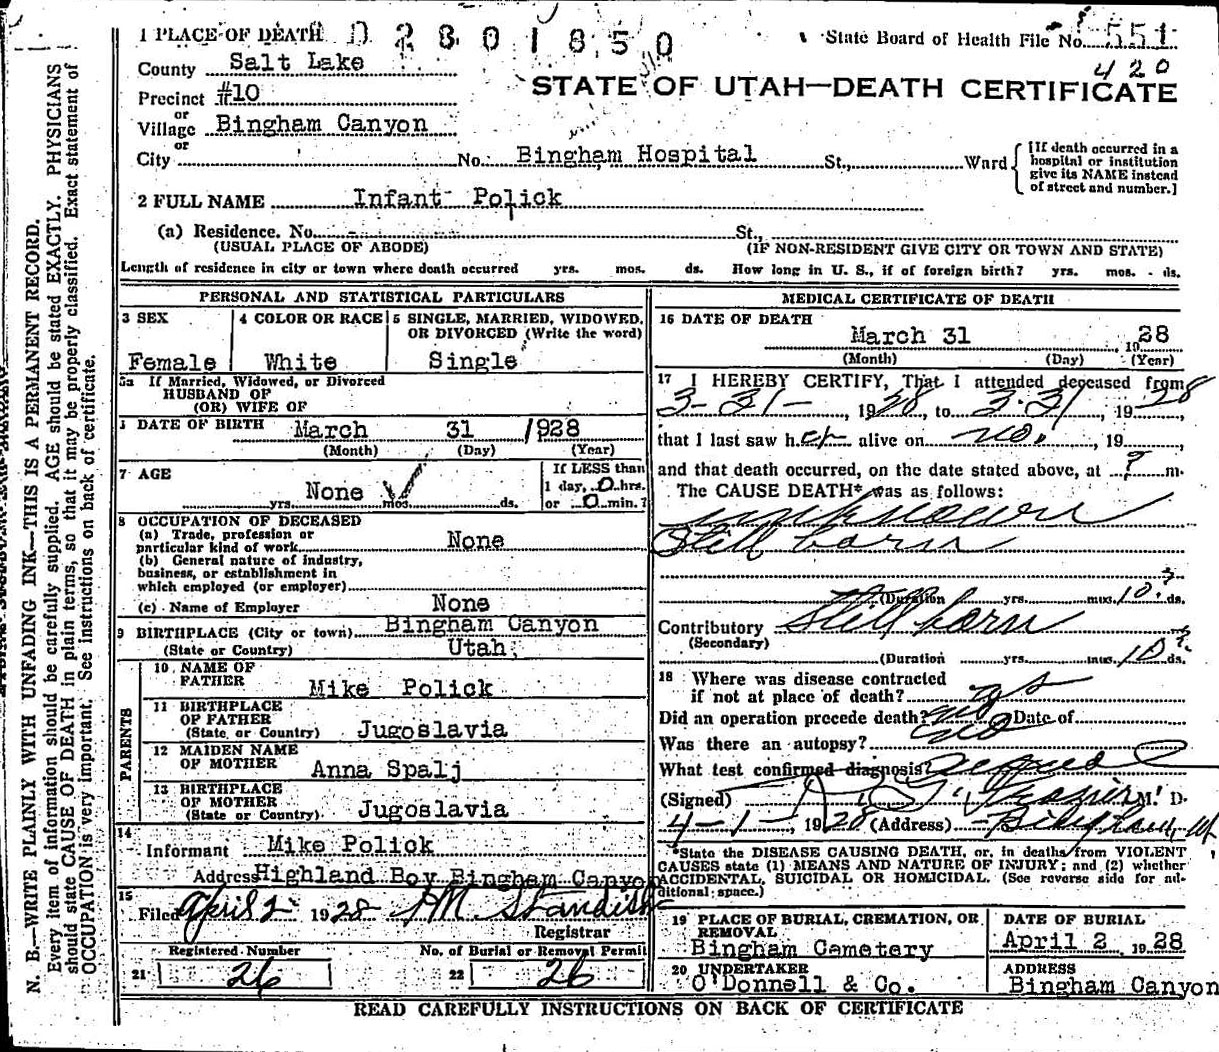 1 PLACE OF DEATH 0 2 8 0 1 8 5 0
State Board of Health File No. 551
420
County Salt Lake
Precinct #10
STATE OF UTAH—DEATH CERTIFICATE
or
Village Bingham Canyon
or
City No. Bingham Hospital St., Ward
[If death occurred in a
hospital or institution
give its NAME instead
of street and number.]
2 FULL NAME Infant Polick
(a) Residence. No. - St.,
(USUAL PLACE OF ABODE) (IF NON-RESIDENT GIVE CITY OR TOWN AND STATE)
Length of residence in city or town where death occurred yrs. mos. ds. How long in U. S., if of foreign birth? yrs. mos. ds.
PERSONAL AND STATISTICAL PARTICULARS
3 SEX
Female
4 COLOR OR RACE
White
5 SINGLE, MARRIED, WIDOWED,
OR DIVORCED (Write the word)
Single
5a If Married, Widowed, or Divorced
HUSBAND OF
(OR) WIFE OF
DATE OF BIRTH March 31 1928
(Month) (Day) (Year)
7 AGE
None
yrs. mos. ds.
If LESS than
1 day, 0 hrs.
or 0 min.?
8 OCCUPATION OF DECEASED
(a) Trade, profession or
particular kind of work None
(b) General nature of industry,
business, or establishment in
which employed (or employer)
(c) Name of Employer None
9 BIRTHPLACE (City or town) Bingham Canyon
(State or Country) Utah
PARENTS
10 NAME OF
FATHER Mike Polick
11 BIRTHPLACE
OF FATHER
(State or Country) Jugoslavia
12 MAIDEN NAME
OF MOTHER Anna Spalj
13 BIRTHPLACE
OF MOTHER
(State or Country) Jugoslavia
14
Informant Mike Polick
Address Highland Boy Bingham Canyon
15
Filed April 2 1928 Standish
Registrar
Registered Number
21 26
No. of Burial or Removal Permit
22 26
MEDICAL CERTIFICATE OF DEATH
16 DATE OF DEATH
March 31, 1928
(Month) (Day) (Year)
17 I HEREBY CERTIFY, That I attended deceased from
3-31-, 1928, to 3-31, 1928,
that I last saw her alive on no., 19
and that death occurred, on the date stated above, at ? m.
The CAUSE DEATH* was as follows:
unknown
Still born
(Duration yrs. mos. 10? ds.
Contributory Still born
(Secondary)
(Duration yrs. mos. 10? ds.
18 Where was disease contracted
if not at place of death? yes
Did an operation precede death? no Date of
Was there an autopsy? no
What test confirmed diagnosis?
(Signed) M. D.
4-1-, 1928 (Address) Bingham, Ut
*State the DISEASE CAUSING DEATH, or, in deaths from VIOLENT
CAUSES state (1) MEANS AND NATURE OF INJURY; and (2) whether
ACCIDENTAL, SUICIDAL OR HOMICIDAL. (See reverse side for ad-
ditional space.)
19 PLACE OF BURIAL, CREMATION, OR
REMOVAL
Bingham Cemetery
DATE OF BURIAL
April 2, 1928
20 UNDERTAKER
O'Donnell & Co.
ADDRESS
Bingham Canyon
READ CAREFULLY INSTRUCTIONS ON BACK OF CERTIFICATE
N. B.—WRITE PLAINLY WITH UNFADING INK—THIS IS A PERMANENT RECORD.
Every item of information should be carefully supplied. AGE should be stated EXACTLY. PHYSICIANS
should state CAUSE OF DEATH in plain terms, so that it may be properly classified. Exact statement of
OCCUPATION is very important. See instructions on back of certificate.